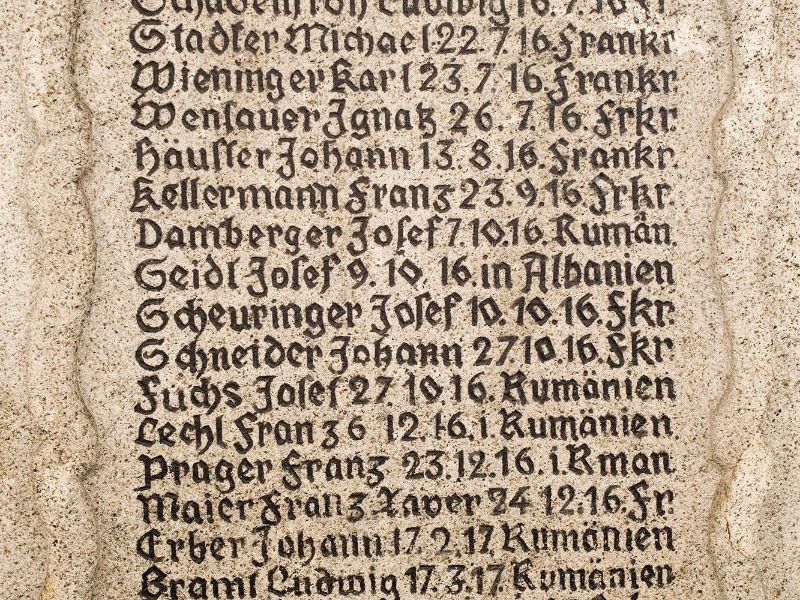 Ludwig 16.7.16 Fr.
Stadler Michael 22.7.16. Frankr
Wieninger Karl 23.7.16. Frankr.
Wensauer Ignatz 26.7.16. Frkr.
Häusler Johann 13.8.16. Frankr.
Kellermann Franz 23.9.16. Frkr.
Damberger Josef 7.10.16. Rumän.
Seidl Josef 9.10.16. in Albanien
Scheuringer Josef 10.10.16. Fkr.
Schneider Johann 27 10.16. Fkr
Fuchs Josef 27 10 16. Rumänien
Lechl Franz 6 12.16. i. Rumänien.
Prager Franz 23.12.16. i. Rman
Maier Franz Xaver 24 12.16. Fr.
Erber Johann 17.2.17. Rumänien
Braml Ludwig 17.3.17. Rumänien